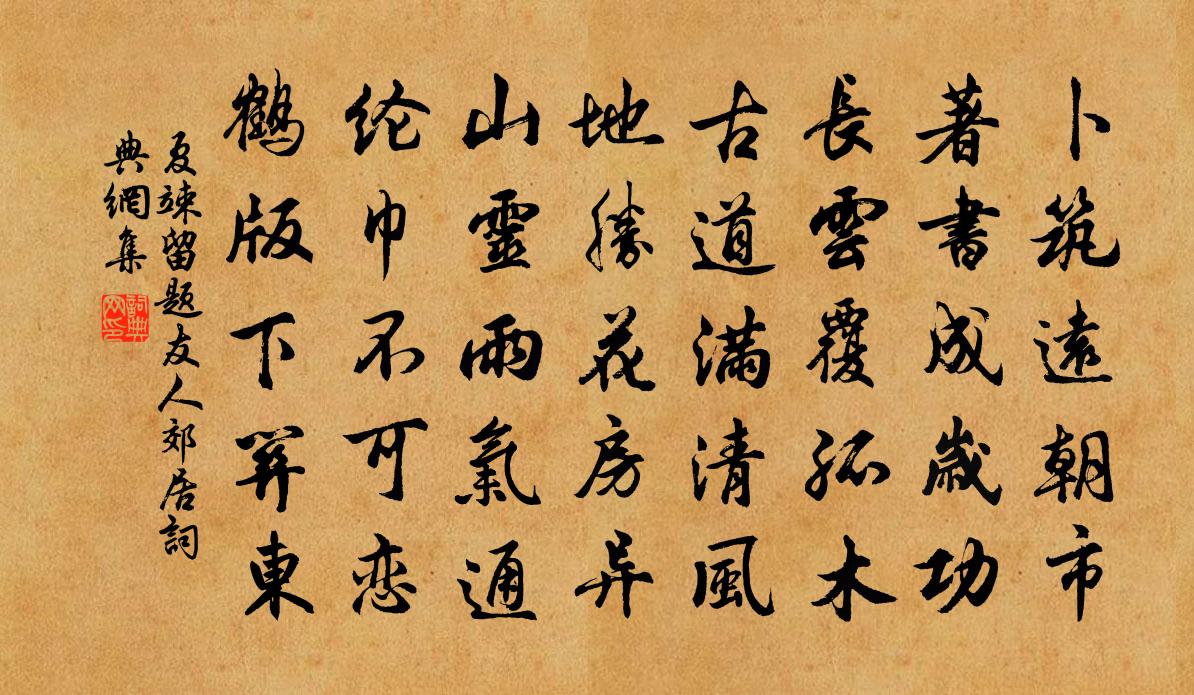 卜筑遠朝市
著書成歲功
長雲覆孤木
古道滿清風
地勝花房异
山靈雨氣通
纶巾不可恋
鶴版下笄東
夏竦留題友人郊居詞
典網集
詞典
网印